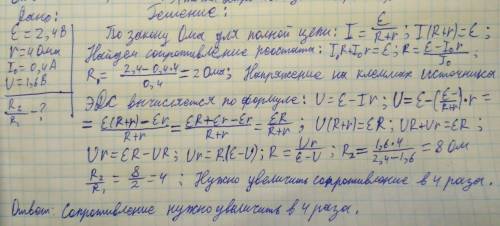 Дано:
Решение:
Ɛ = 2,4В
r = 4 Ома
I₀ = 0,4А
U = 1,6В
R₂/R₁ - ?
По закону Ома для полной цепи: I = Ɛ/(R+r); I(R+r) = Ɛ;
Найдем сопротивление реостата: I₀R+I₀r = Ɛ; R = (Ɛ-I₀r)/I₀;
R₁ = (2,4-0,4·4)/0,4 = 2 Ома; Напряжение на клеммах источника
ЭДС вычисляется по формуле: U = Ɛ-Ir; U = Ɛ-(Ɛ/(R+r))·r =
= (Ɛ(R+r)-Ɛr)/(R+r) = (ƐR+Ɛr-Ɛr)/(R+r) = ƐR/(R+r); U(R+r)=ƐR; UR+Ur=ƐR;
Ur = ƐR-UR; Ur=R(Ɛ-U); R = Ur/(Ɛ-U); R₂ = (1,6·4)/(2,4-1,6) = 8 Ом
R₂/R₁ = 8/2 = 4; Нужно увеличить сопротивление в 4 раза.
Ответ: Сопротивление нужно увеличить в 4 раза.